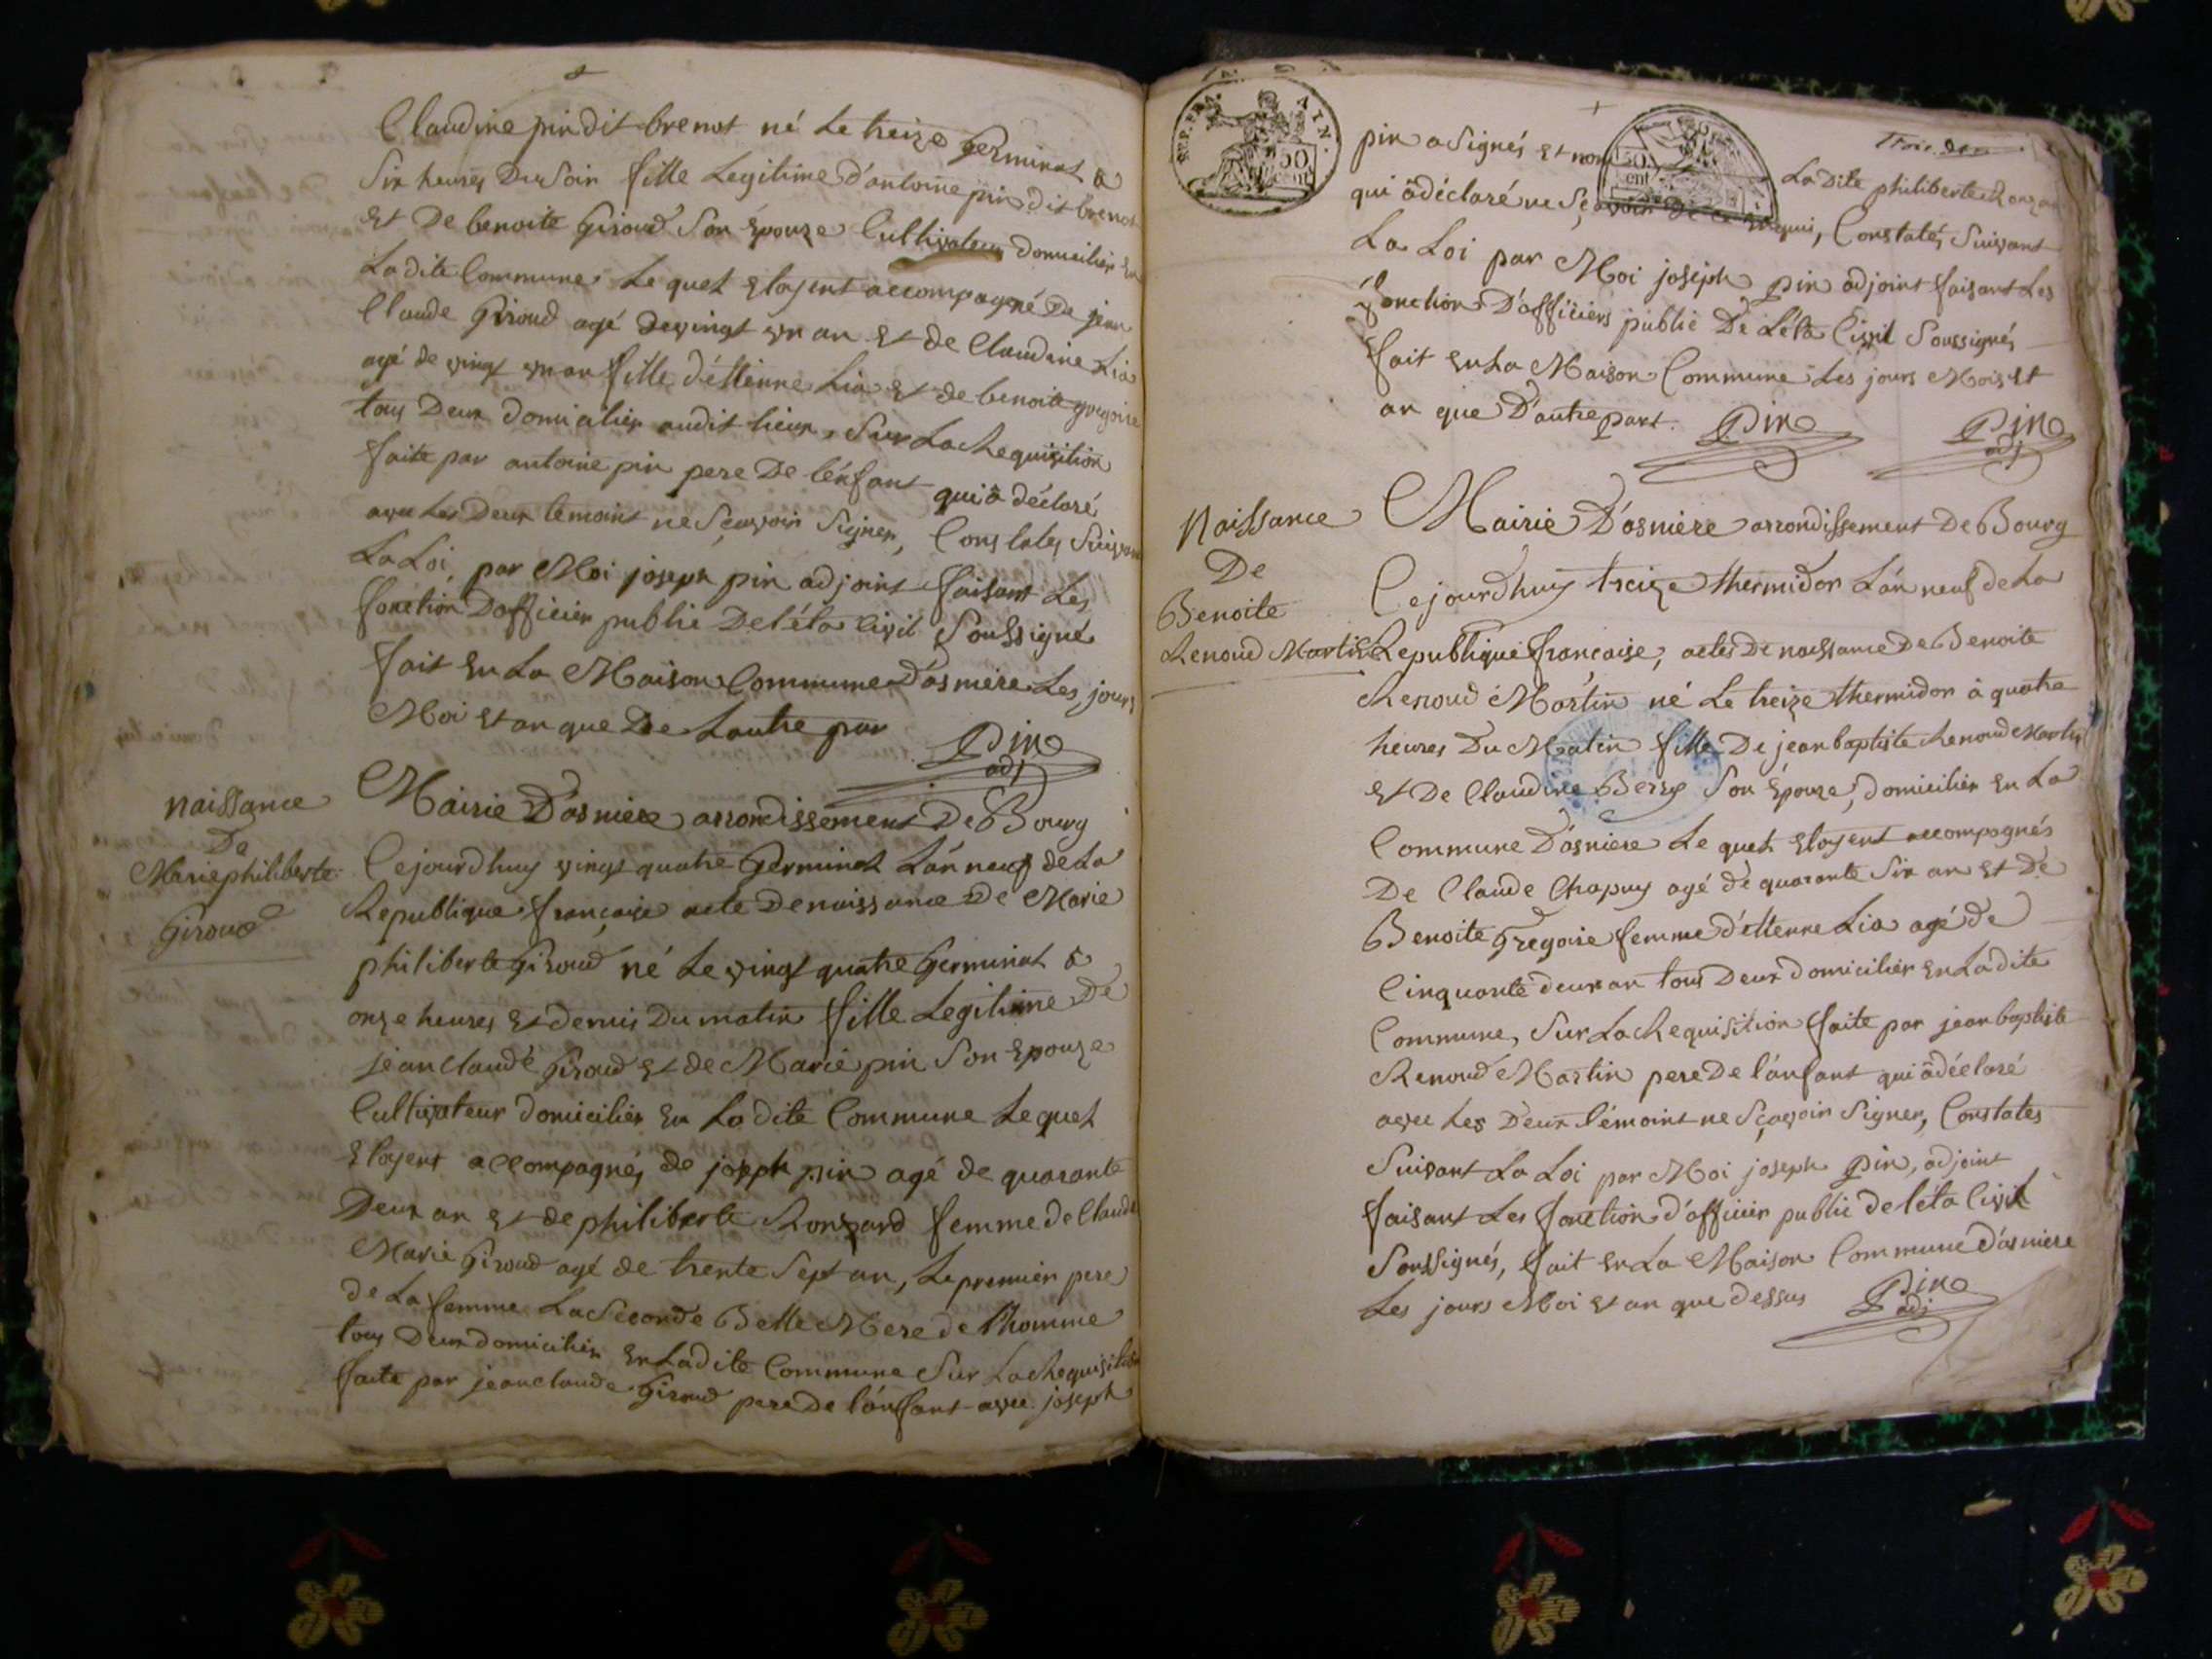 Claudine pin dit brenot né Le treize Germinal à
Six heures Du Soir fille Legitime d'antoine pin dit brenot
Et De benoite Giroud Son Epouze Cultivateur domicilier En
Ladite Commune Lequel Etoyent accompagné De jean
Claude Giroud agé de vingt un an Et de Claudine Lia
agé de vingt un an fille d'étienne Lia Et de benoite gregoire
tous Deux domicilier audit lieux, Sur La Requisition
faite par antoine pin pere De lénfant qui à déclaré
avec Les Deux temoint ne Sçavoir Signer, Constates Suivant
La Loi par Moi joseph pin adjoint faisant Les
fonction D'officier public De l'éta Civil Soussigné
fait En La Maison Commune D'asniere Les jours
Moi Et an que De Lautre par
Pin
adj
Naissance
De
Marie philiberte
Giroud
Mairie D'asniere arrondissement De Bourg
Cejourdhuy vingt quatre Germinal L'án neuf de La
Republique francaise acte De naissance De Marie
philiberte Giroud né Le vingt quatre Germinal à
onze heures Et demis Du matin fille Legitime De
jean claude Giroud Et de Marie pin Son Epouze
Cultivateur domicilier En Ladite Commune Lequel
Etoyent accompagnés de joseph pin agé de quarante
Deux an Et de philiberte Ronzard femme de Claude
Marie Giroud agé de trente Sept an, Le premier pere
de La femme La Seconde Belle Mere de l'homme
tous Deux domicilier En Ladite Commune Sur La Requisition
faite par jean claude Giroud pere De lánfant avec joseph
REP. FRA. AIN.
50
cent
50
cent
pin a Signés Et non La Dite philiberte
qui à déclaré ne Sçavoir De ce Enquis, Constatés Suivant
La Loi par Moi joséph pin adjoint faisant Les
fonction D'officiers public De L'éta Civil Soussignés
fait En La Maison Commune Les jours Mois Et
an que D'autre part.
Pin
Pin
adj
Naissance
De
Benoite
Renoud Martin
Mairie D'asniere arrondissement De Bourg
Cejourdhuy treize thermidor L'án neuf de La
Republique francaise, actes De naissance De Benoite
Renoud Martin né Le treize thermidor à quatre
heures Du Matin fille De jean baptiste Renoud Martin
Et De Claudine Berry Son Epouze, domicilier En La
Commune D'ásniere Lequel Etoyent accompagnés
De Claude Chapuy agé de quarante Six an Et De
Benoite Gregoire femme d'étienne Lia agé de
Cinquante deux an tous Deux domicilier En Ladite
Commune, Sur La Requisition faite par jean baptiste
Renoud Martin pere De lánfant qui à déclaré
avec Les Deux témoint ne Sçavoir Signer, Constates
Suivant La Loi par Moi joseph Pin, adjoint
faisant Les fonction d'officier public de l'éta Civil
Soussignés, fait En La Maison Commune D'asniere
Les jours Moi Et an que dessus
Pin
adj